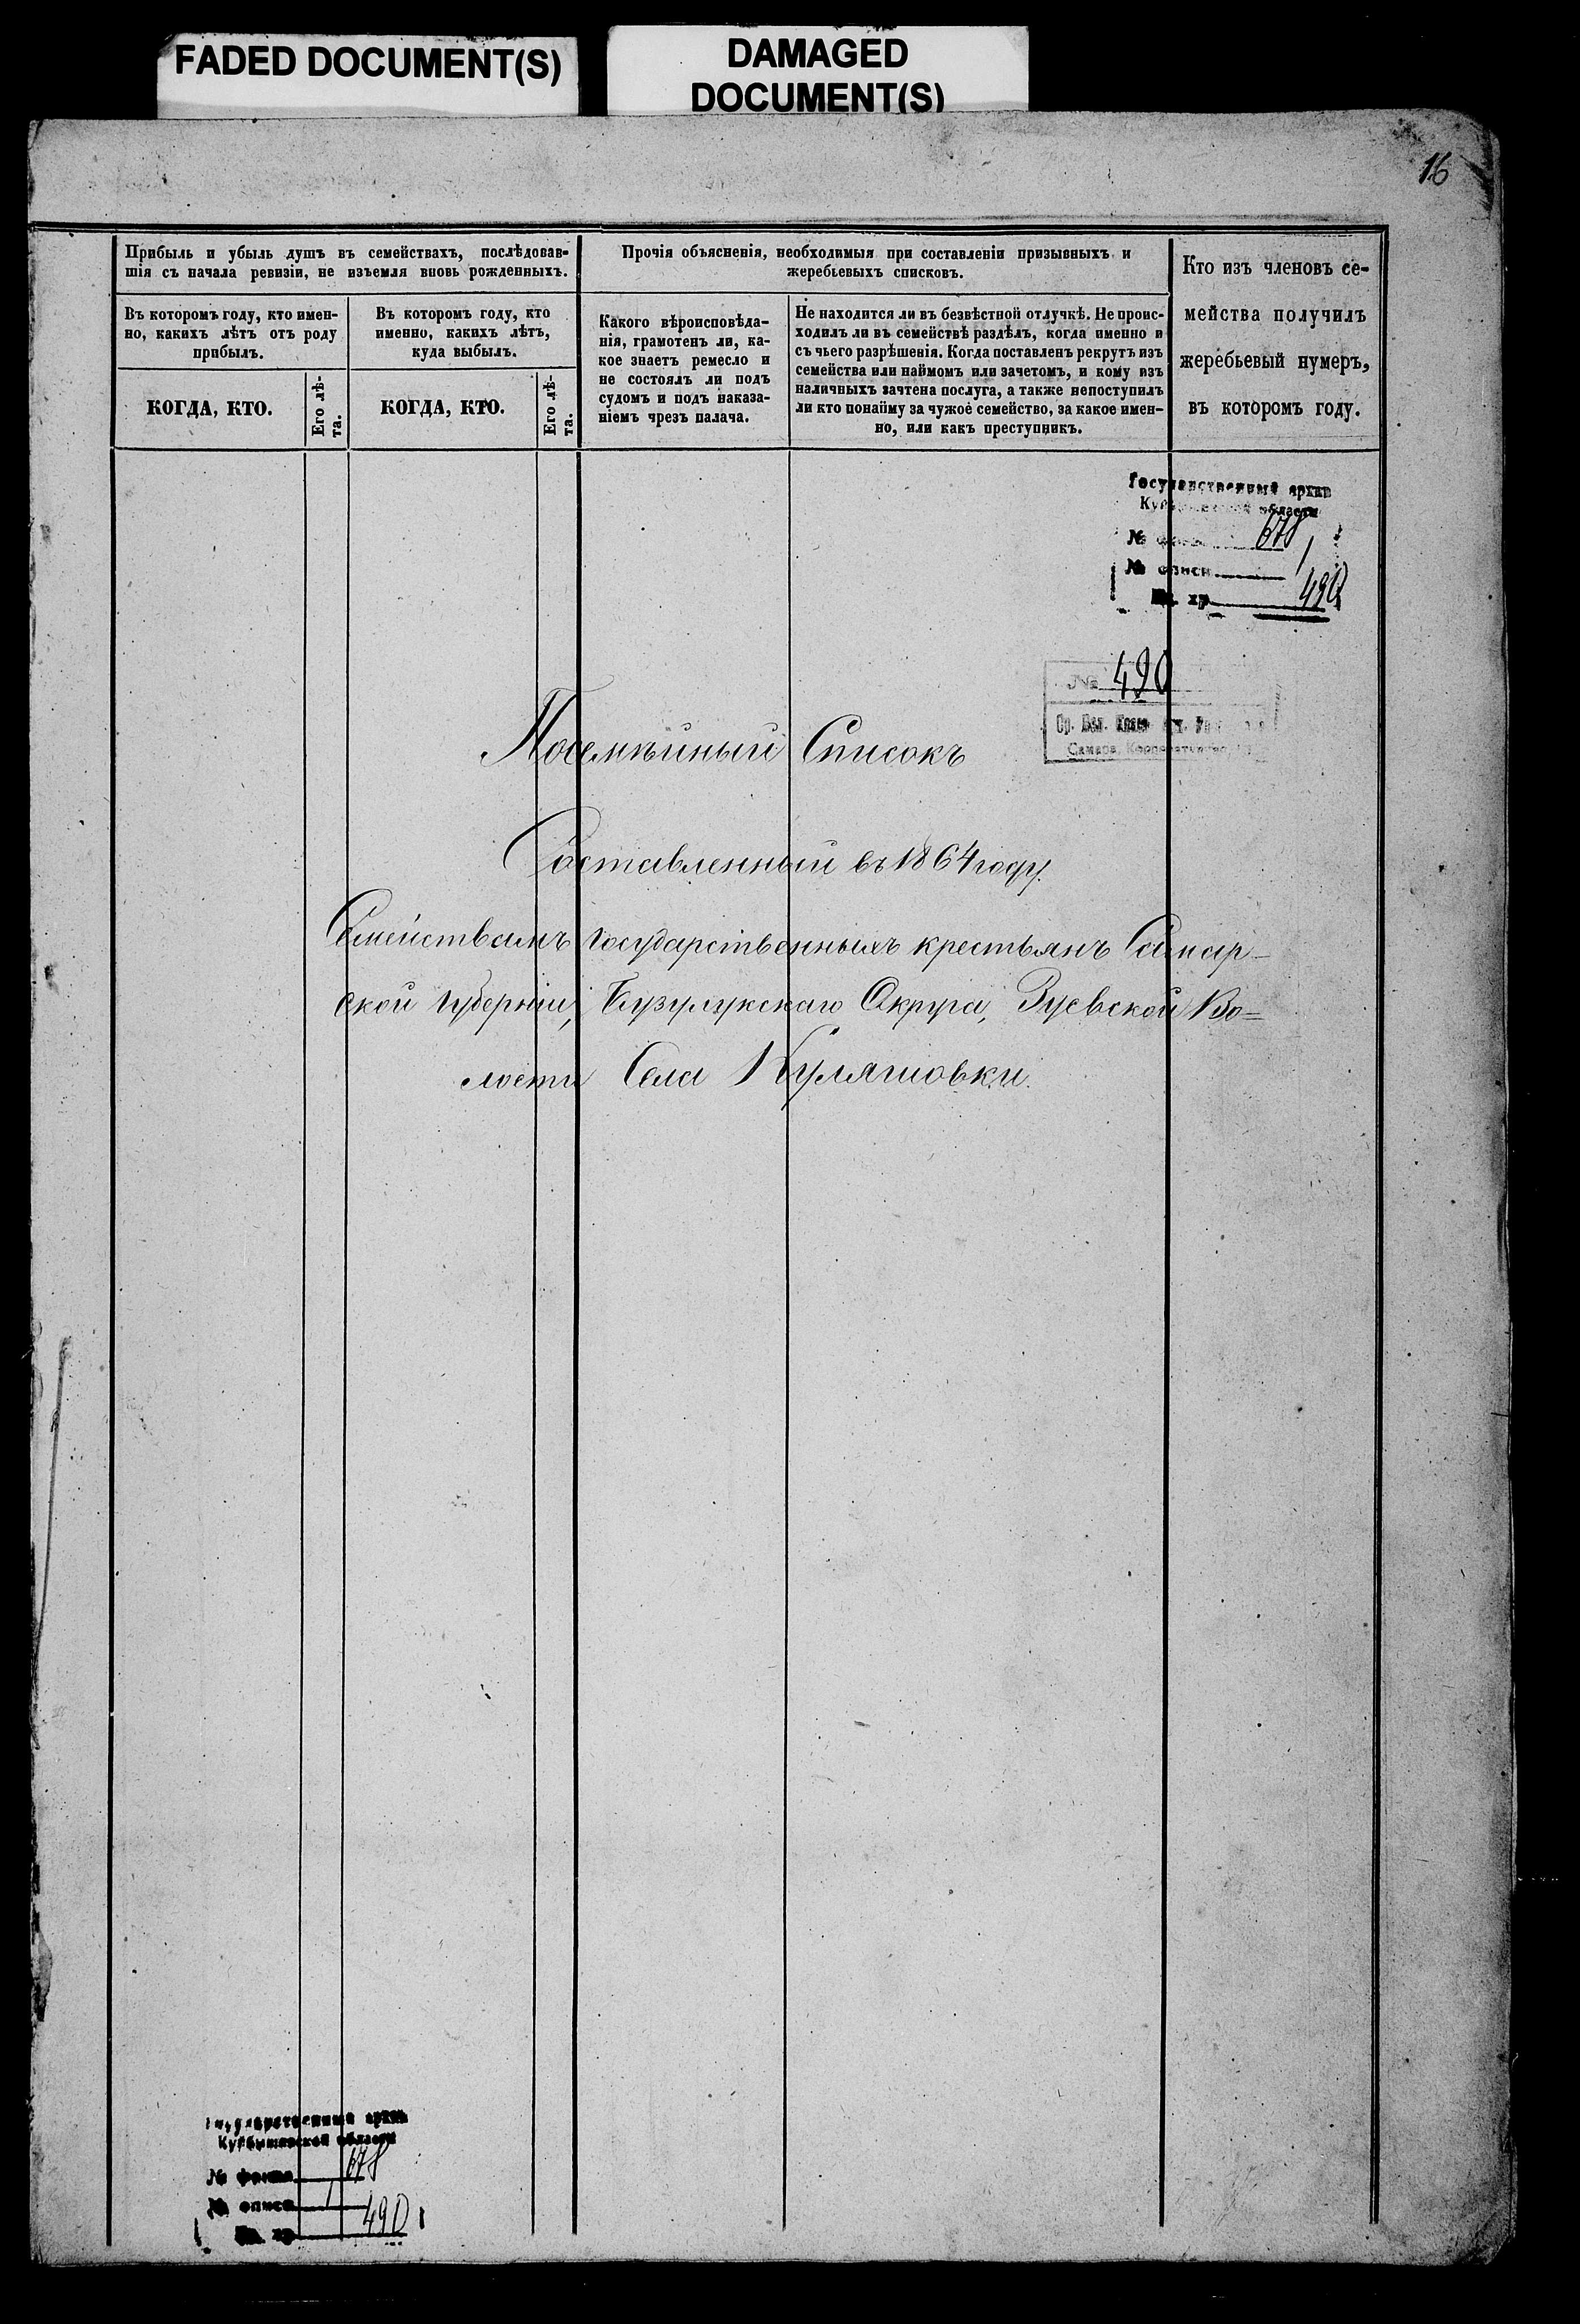 FADED DOCUMENT(S)
DAMAGED
DOCUMENT(S)
16
Прибыль и убыль душъ въ семействахъ, послѣдовав-
шія съ начала ревизіи, не изъемля вновь рожденныхъ.
Въ которомъ году, кто имен-
но, какихъ лѣтъ отъ роду
прибылъ.
КОГДА, КТО.
Его лѣ-
та.
Въ которомъ году, кто
именно, какихъ лѣтъ,
куда выбылъ.
КОГДА, КТО.
Его лѣ-
та.
Прочія объясненія, необходимыя при составленіи призывныхъ и
жеребьевыхъ списковъ.
Какого вѣроисповѣда-
нія, грамотенъ ли, ка-
кое знаетъ ремесло и
не состоялъ ли подъ
судомъ и подъ наказа-
ніемъ чрезъ палача.
Не находится ли въ безвѣстной отлучкѣ. Не проис-
ходилъ ли въ семействѣ раздѣлъ, когда именно и
съ чьего разрѣшенія. Когда поставленъ рекрутъ изъ
семейства или наймомъ или зачетомъ, и кому изъ
наличныхъ зачтена послуга, а также непоступилъ
ли кто понайму за чужое семейство, за какое имен-
но, или какъ преступникъ.
Кто изъ членовъ се-
мейства получилъ
жеребьевый нумеръ,
въ которомъ году.
Государственный архив
Куйбышевской области
№ фонда 678
№ описи 1
Ед. хр. 490
№ 490
Самара
Посемѣйный Списокъ
Составленный въ 1864 году.
Семействамъ государственныхъ крестьянъ Самар-
ской губерніи, Бузулукскаго Округа, Зуевской Во=
лости Села Куляшовки.
Государственный архив
Куйбышевской области
№ фонда 678
№ описи 1
Ед. хр. 490